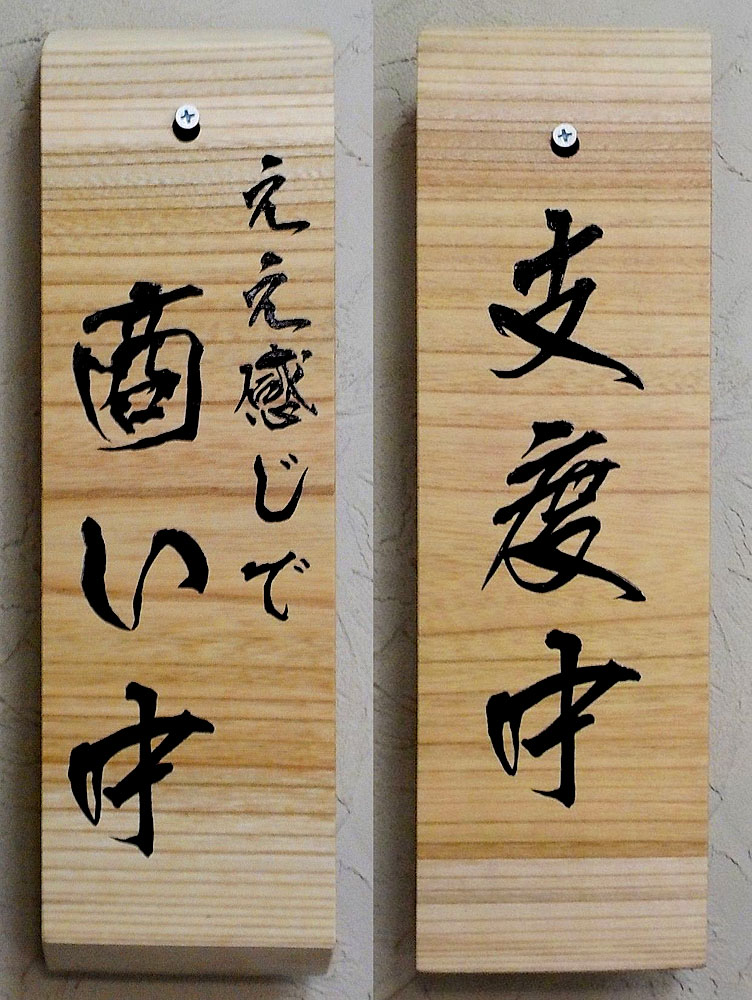 ええ感じで
商い中
支度中